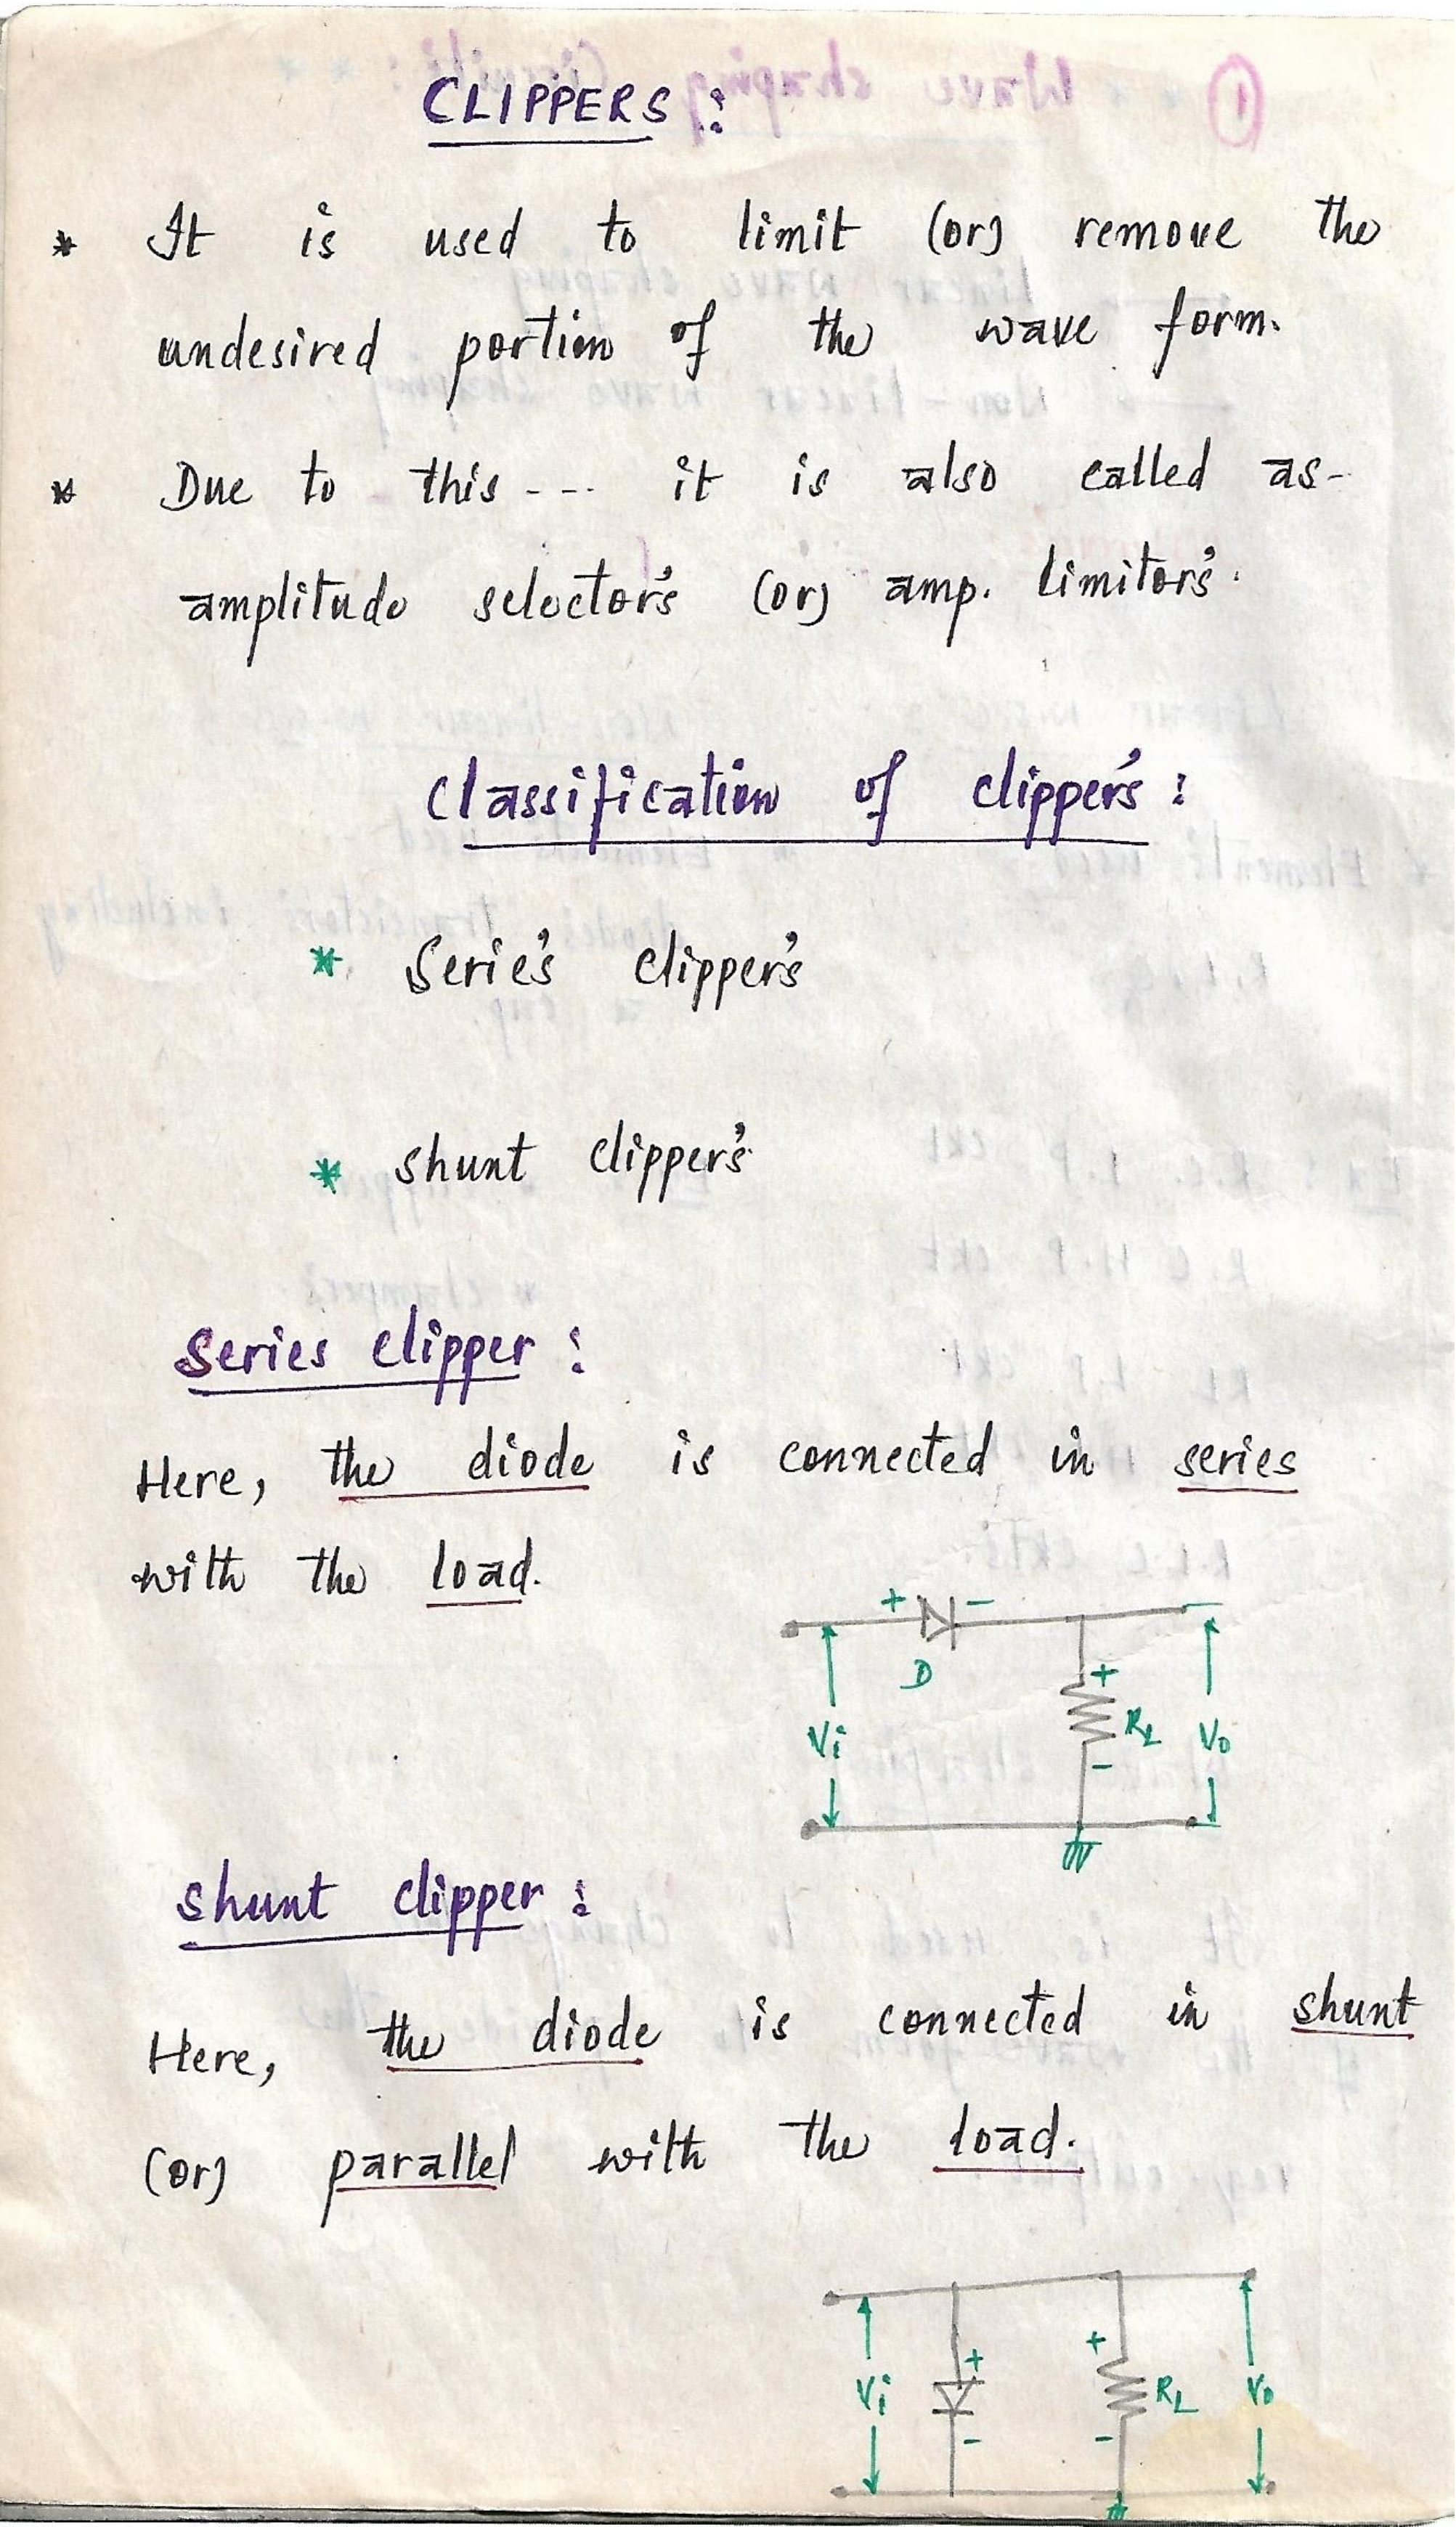 CLIPPERS :
* It is used to limit (or) remove the
undesired portion of the wave form.
* Due to this --- it is also called as-
amplitude selector's (or) amp. limitor's.
Classification of clipper's :
* Serie's clipper's
* shunt clipper's
Series clipper :
Here, the diode is connected in series
with the load.
+ -
D
+
Vi RL Vo
-
shunt clipper :
Here, the diode is connected in shunt
(or) parallel with the load.
+ +
Vi RL Vo
- -